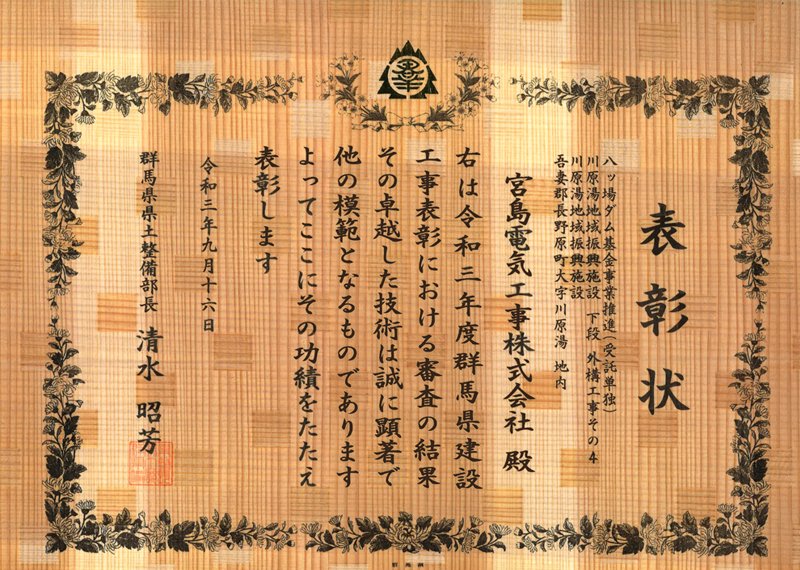 表彰状
八ッ場ダム基金事業推進(受託単独)
川原湯地域振興施設 下段 外構工事その4
川原湯地域振興施設
吾妻郡長野原町大字川原湯 地内
宮島電気工事株式会社 殿
右は令和三年度群馬県建設
工事表彰における審査の結果
その卓越した技術は誠に顕著で
他の模範となるものであります
よってここにその功績をたたえ
表彰します
令和三年九月十六日
群馬県県土整備部長 清水 昭芳